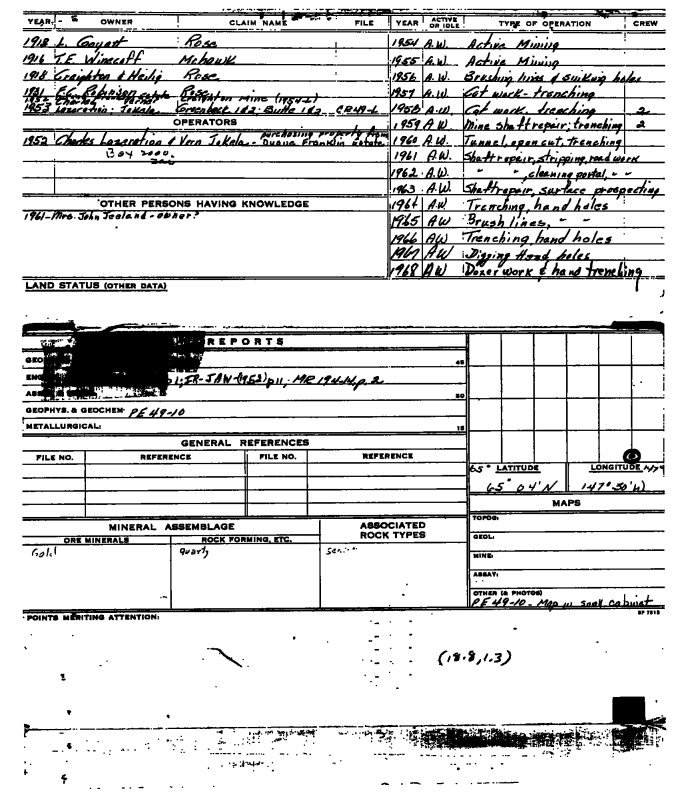 YEAR OWNER CLAIM NAME FILE YEAR ACTIVE OR IDLE TYPE OF OPERATION CREW
1918 L. Rose 1954 A.W. Active Mining
1916 T.E. Winecoff Mohawk 1955 A.W. Active Mining
1918 Creighton & Heilig Rose 1956 A.W. Brushing lines & sinking holes
1931 F.C. Robinson Rose 1957 A.W. Cat work - trenching
1952 Creighton Mine (1954-L)
1953 Lazeration: Jokela 1&2; Butte 1&2 1958 A.W. Cat work, trenching 2
OPERATORS 1959 A W Mine shaft repair; trenching 2
1952 Charles Lazeration & Vern Jokela - purchasing property from Duane Franklin estate 1960 A.W. Tunnel, open cut, trenching
Box 2000. 1961 A.W. Shaft repair, stripping, road work
1962 A.W. " " , cleaning portal, - -
1963 A.W. Shaft repair, surface prospecting
OTHER PERSONS HAVING KNOWLEDGE 1964 A.W. Trenching, hand holes
1961-Mrs. John Tealand - owner? 1965 AW Brush lines, - -
1966 AW Trenching hand holes
1967 AW Digging Hand holes
1968 AW Dozer work & hand trenching
LAND STATUS (OTHER DATA)
REPORTS
45
IR-JAW-(1952) p11, MR 194-14, p. 2
30
GEOPHYS. & GEOCHEM. PE 49-10
METALLURGICAL: 15
GENERAL REFERENCES
FILE NO. REFERENCE FILE NO. REFERENCE
65° LATITUDE LONGITUDE 147°
65° 04' N 147° 30' W
MAPS
MINERAL ASSEMBLAGE ASSOCIATED ROCK TYPES
ORE MINERALS ROCK FORMING, ETC.
TOPOG:
GEOL:
Gold quartz
MINE:
ASSAY:
OTHER (& PHOTOS)
PE 49-10 - Map in small cabinet
POINTS MERITING ATTENTION:
(18.8, 1.3)